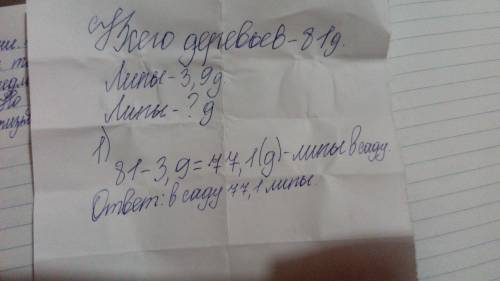 Всего деревьев - 81д.
Липы - 3,9д
Липы - ? д
1)
81-3,9=77,1(д)-липы в саду.
Ответ: в саду 77,1 липы.